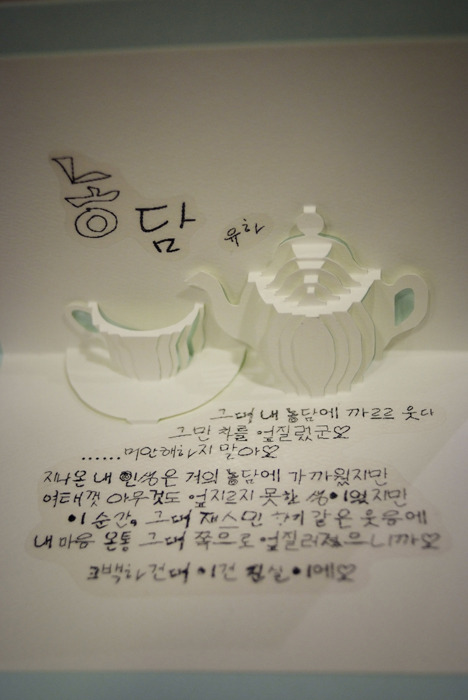 농담
유하
그대 내 농담에 까르르 웃다
그만 차를 엎질렀군♡
......미안해하지 말아♡
지나온 내 인생은 거의 농담에 가까웠지만
여태껏 아무것도 엎지르지 못한 생이었지만
이 순간, 그대 재스민 향기 같은 웃음에
내 마음 온통 그대 쪽으로 엎질러졌으니까♡
고백하건대 이건 진실이에♡